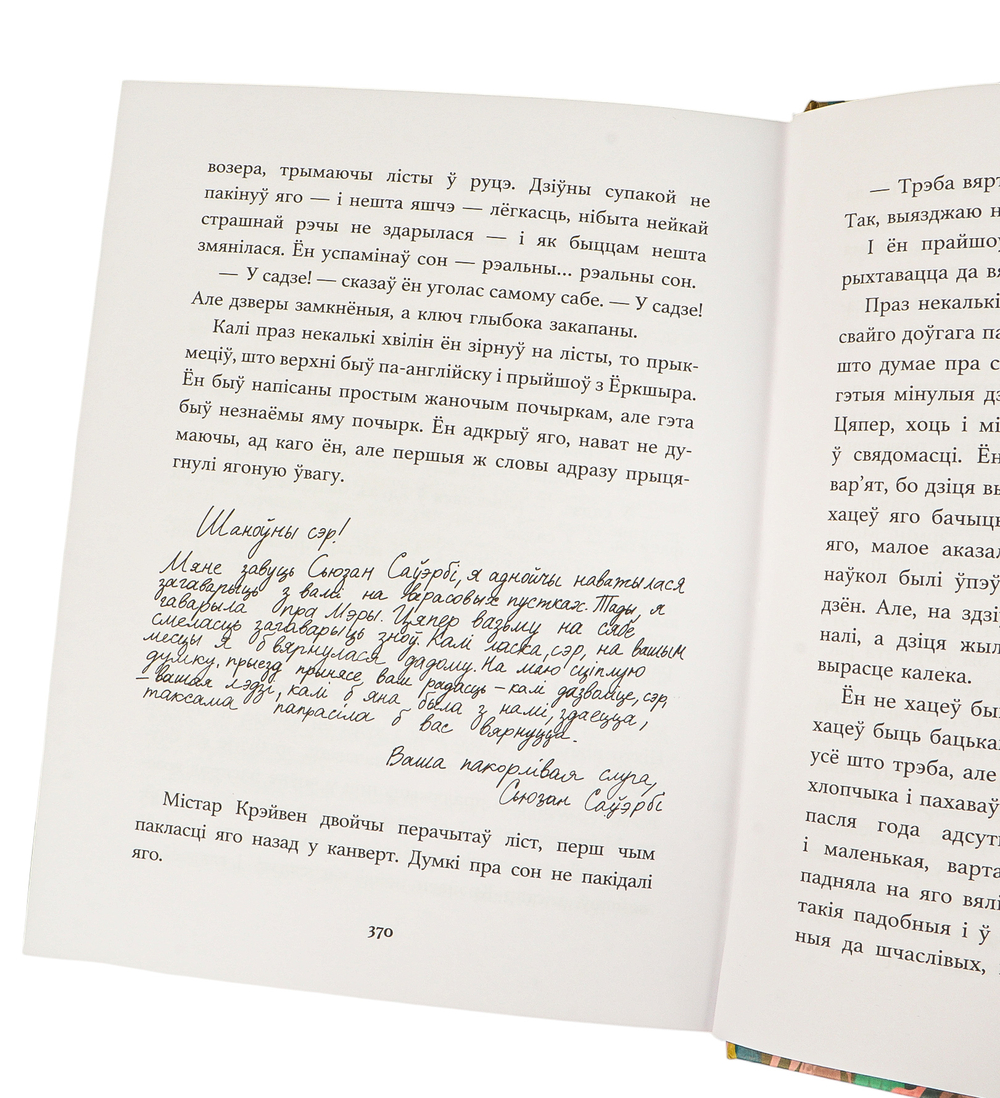 возера, трымаючы лісты ў руцэ. Дзіўны супакой не
пакінуў яго — і нешта яшчэ — лёгкасць, нібыта нейкай
страшнай рэчы не здарылася — і як быццам нешта
змянілася. Ён успамінаў сон — рэальны... рэальны сон.
— У садзе! — сказаў ён уголас самому сабе. — У садзе!
Але дзверы замкнёныя, а ключ глыбока закапаны.
Калі праз некалькі хвілін ён зірнуў на лісты, то прык-
меціў, што верхні быў па-англійску і прыйшоў з Ёркшыра.
Ён быў напісаны простым жаночым почыркам, але гэта
быў незнаёмы яму почырк. Ён адкрыў яго, нават не ду-
маючы, ад каго ён, але першыя ж словы адразу прыця-
гнулі ягоную ўвагу.
Шаноўны сэр!
Мяне завуць Сьюзан Саўэрбі, я аднойчы наважылася
загаварыць з вамі на верасовых пустках. Тады я
гаварыла пра Мэры. Цяпер вазьму на сябе
смеласць загаварыць зноў. Калі ласка, сэр, на вашым
месцы я б вярнулася дадому. На маю сціплую
думку, прыезд прынясе вам радасць – калі дазволіце, сэр,
– вашая лэдзі, калі б яна была з намі, здаецца,
таксама папрасіла б вас вярнуцца.
Ваша пакорлівая слуга,
Сьюзан Саўэрбі
Містар Крэйвен двойчы перачытаў ліст, перш чым
пакласці яго назад у канверт. Думкі пра сон не пакідалі
яго.
370
— Трэба
Так, выязджаю
І ён
рыхтавацца да
Праз некалькі
свайго доўгага
што думае пра
гэтыя мінулыя
Цяпер, хоць і
ў свядомасці. Ён
вар’ят, бо дзіця
хацеў яго
яго, малое
наўкол былі
дзён. Але, на
налі, а дзіця
вырасце калека.
Ён не хацеў
хацеў быць
усё што трэба, але
хлопчыка і
пасля года
і маленькая,
падняла на яго
такія падобныя і ў
ныя да шчаслівых,